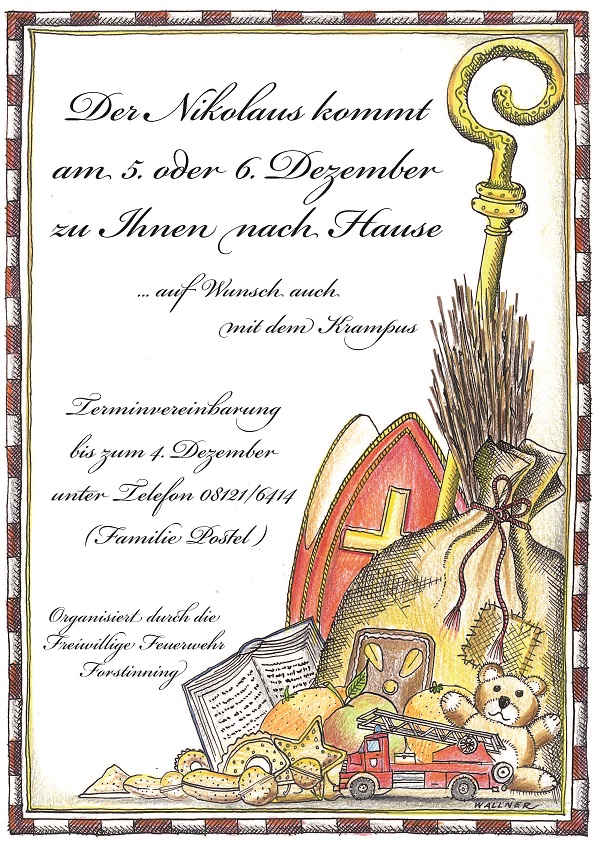 Der Nikolaus kommt
am 5. oder 6. Dezember
zu Ihnen nach Hause
... auf Wunsch auch
mit dem Krampus
Terminvereinbarung
bis zum 4. Dezember
unter Telefon 08121/6414
(Familie Postel)
Organisiert durch die
Freiwillige Feuerwehr
Forstinning
WALLNER